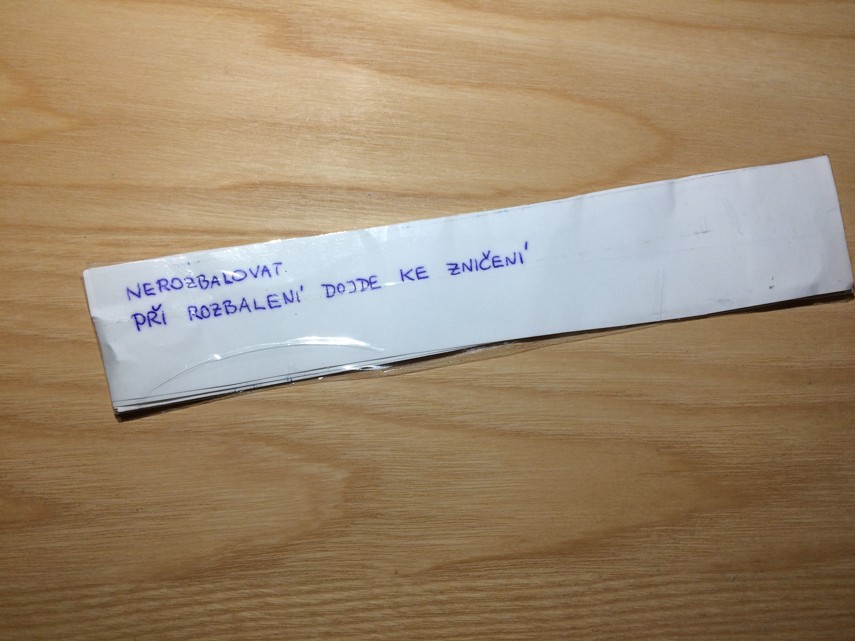 NEROZBALOVAT.
PŘI ROZBALENÍ DOJDE KE ZNIČENÍ